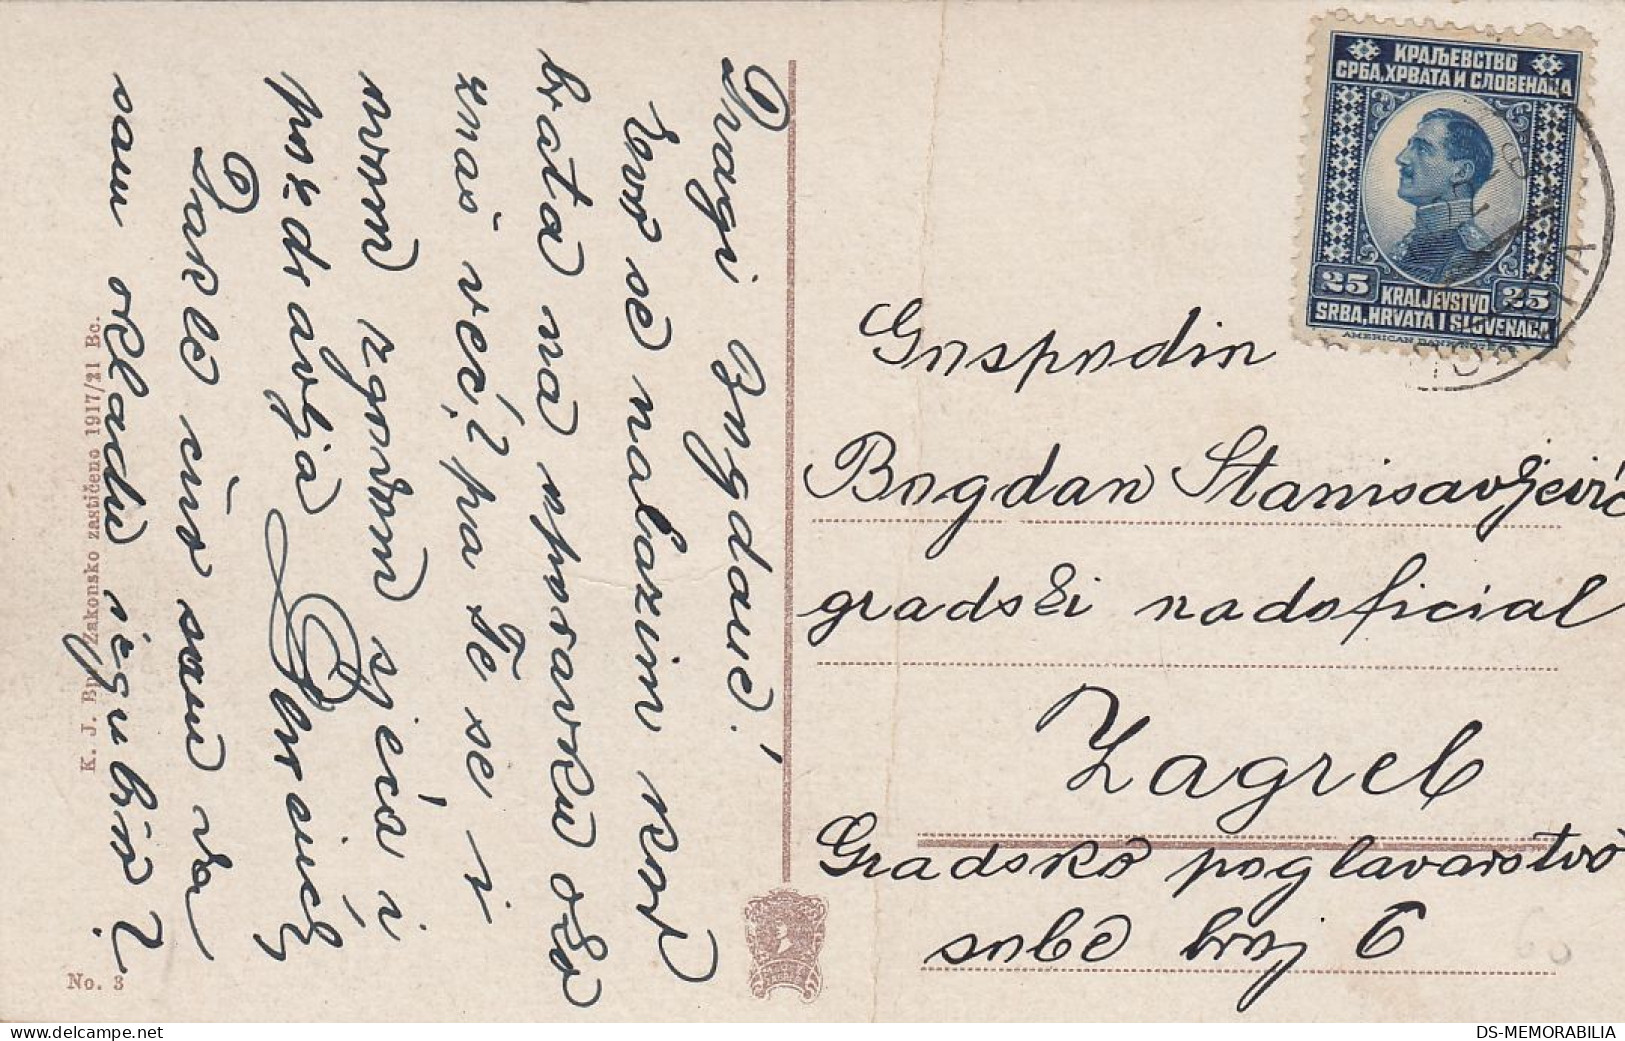 Dragi Bogdane!
Evo se nalazim kod
brata na oporavku oko
znaš već? pa Te se i
ovom zgodom sjeća i
pozdravlja
Dakle čuo sam da
sam okladu izgubio?
K. J. Bp. Zakonsko zaštićeno 1917/21 Bc.
No. 3
КРАЉЕВСТВО
СРБА, ХРВАТА И СЛОВЕНАЦА
25 KRALJEVSTVO 25
SRBA, HRVATA I SLOVENACA
AMERICAN BANK
Gospodin
Bogdan Stanisavljević
gradski nadoficial
Zagreb
Gradsko poglavarstvo
sobe broj 6
DS-MEMORABILIA